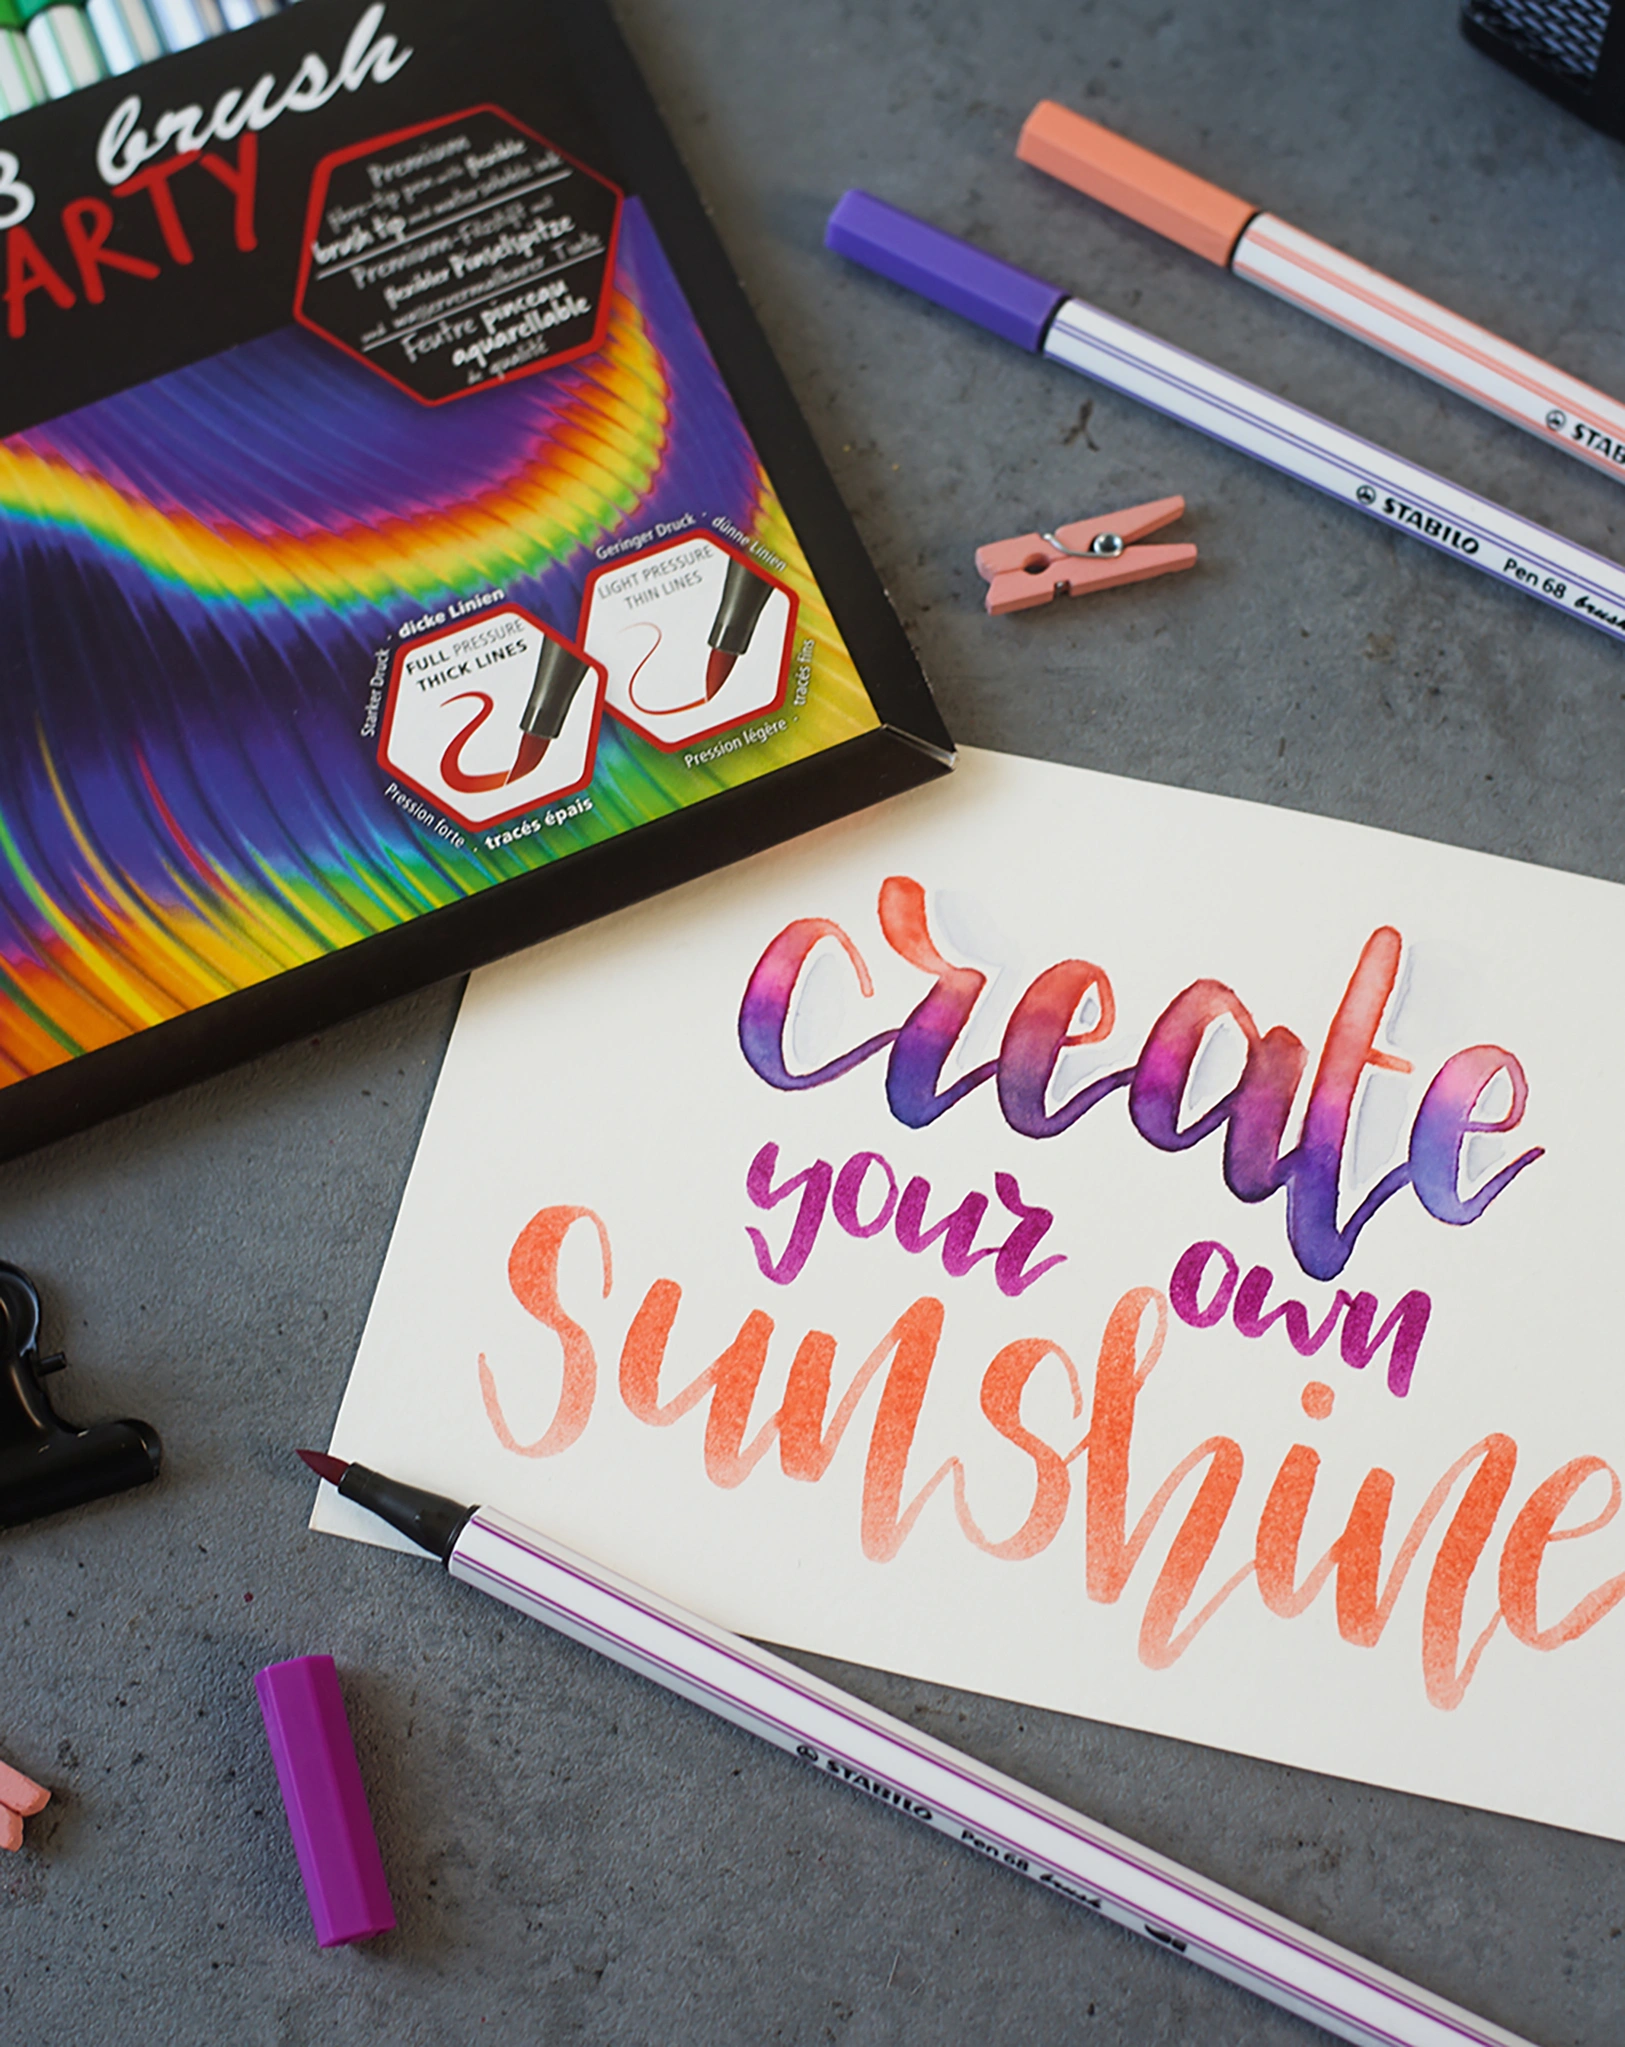 brush
ARTY
Premium
fibre-tip pen with flexible
brush tip and water-soluble ink
Premium-Filzstift mit
flexibler Pinselspitze
und wasservermalbarer Tinte
Feutre pinceau
aquarellable
de qualité
Starker Druck · dicke Linien
FULL PRESSURE
THICK LINES
Pression forte · tracés épais
Geringer Druck · dünne Linien
LIGHT PRESSURE
THIN LINES
Pression légère · tracés fins
STAB
STABILO Pen 68 brush
create
your own
Sunshine
STABILO Pen 68 brush